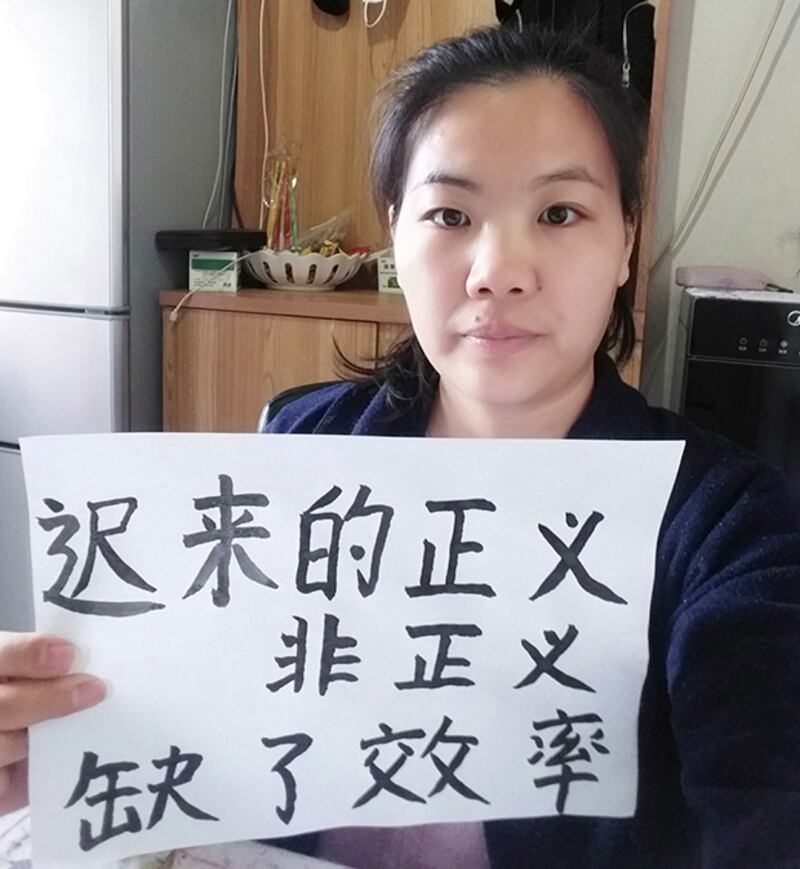 迟来的正义
非正义
缺了效率